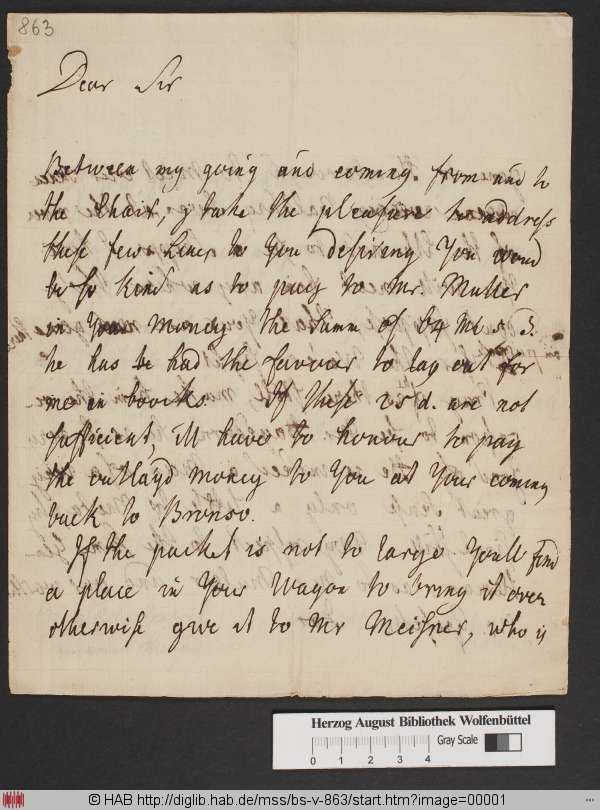 863
Dear Sir
Between my going and coming from and to
the Chair, y take the pleasure to address
these few Lines to You desiring You woud
be so kind as to pay to Mr. Muller
in Your Money the Summ of 64 M
he has had the favour to lay out for
me inboocks. If these are not
sufficient, ill have to honour to pay
the outlayd money to You at Your coming
back to Bronso.
If the packet is not to large Youll find
a place in Your Wagon to bring it over
otherwise give it to Mr Meisner, who is
Herzog August Bibliothek Wolfenbüttel
Gray Scale
0 1 2 3 4
© HAB http://diglib.hab.de/mss/bs-v-863/start.htm?image=00001